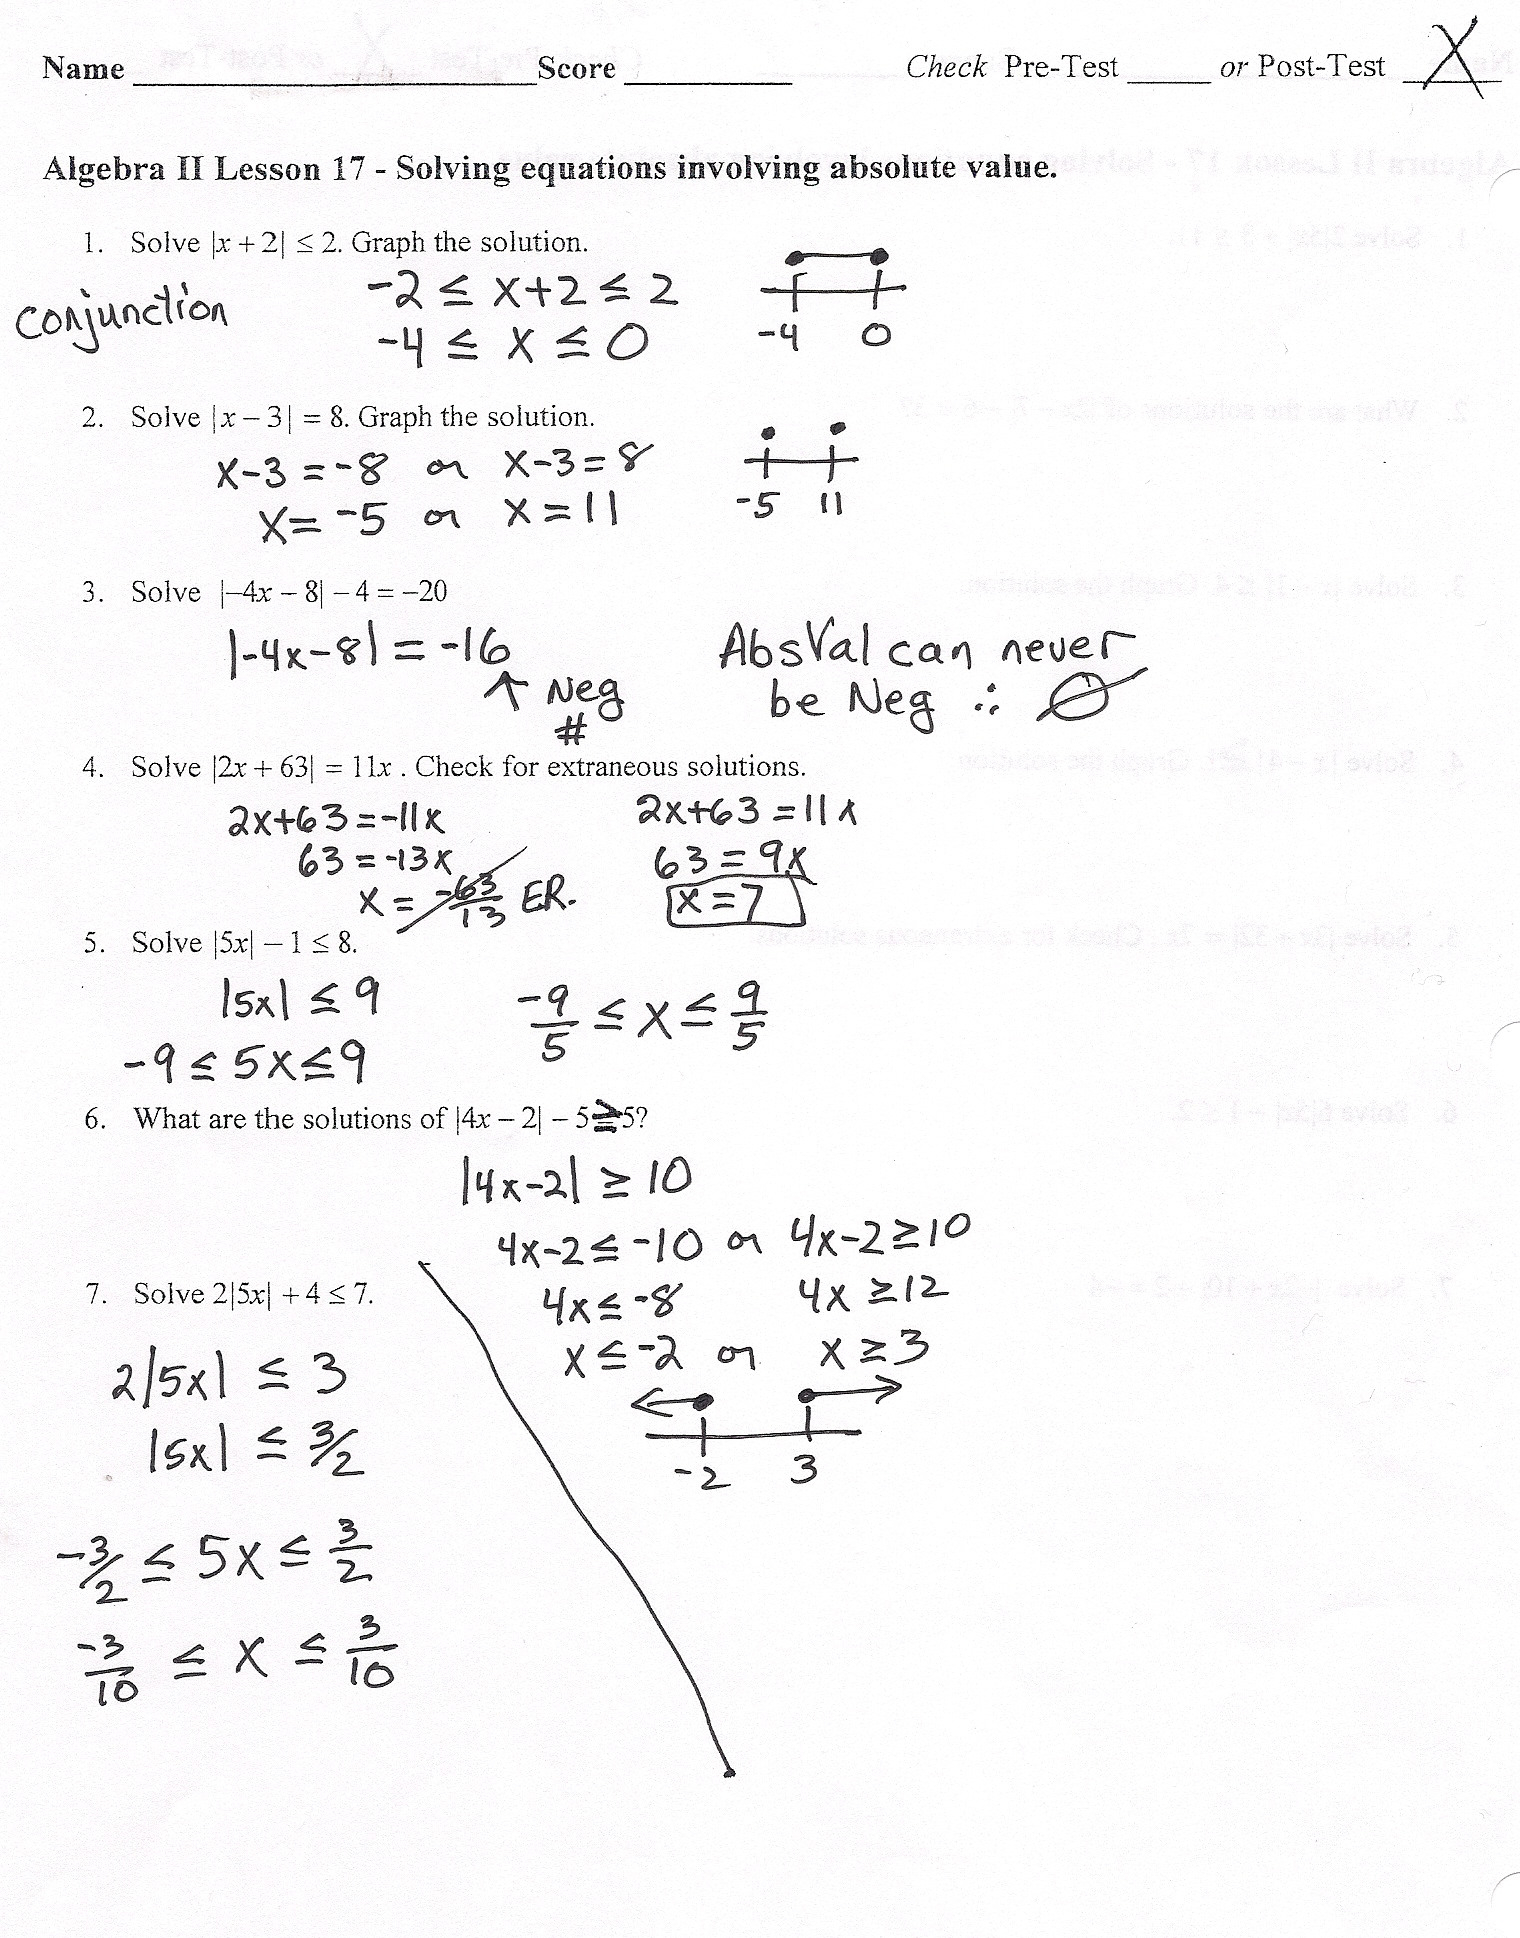 Name Score Check Pre-Test or Post-Test X
Algebra II Lesson 17 - Solving equations involving absolute value.
1. Solve |x + 2| ≤ 2. Graph the solution.
conjunction
-2 ≤ x+2 ≤ 2
-4 ≤ x ≤ 0
-4 0
2. Solve |x – 3| = 8. Graph the solution.
x-3 = -8 or x-3 = 8
x = -5 or x = 11
-5 11
3. Solve |–4x – 8| – 4 = –20
|-4x-8| = -16
↑ Neg
#
AbsVal can never
be Neg ∴ ∅
4. Solve |2x + 63| = 11x . Check for extraneous solutions.
2x+63 = -11x
63 = -13x
x = -63/13 ER.
2x+63 = 11x
63 = 9x
x = 7
5. Solve |5x| – 1 ≤ 8.
|5x| ≤ 9
-9 ≤ 5x ≤ 9
-9/5 ≤ x ≤ 9/5
6. What are the solutions of |4x – 2| – 5 ≥ 5?
|4x-2| ≥ 10
4x-2 ≤ -10 or 4x-2 ≥ 10
4x ≤ -8 4x ≥ 12
x ≤ -2 or x ≥ 3
-2 3
7. Solve 2|5x| + 4 ≤ 7.
2|5x| ≤ 3
|5x| ≤ 3/2
-3/2 ≤ 5x ≤ 3/2
-3/10 ≤ x ≤ 3/10